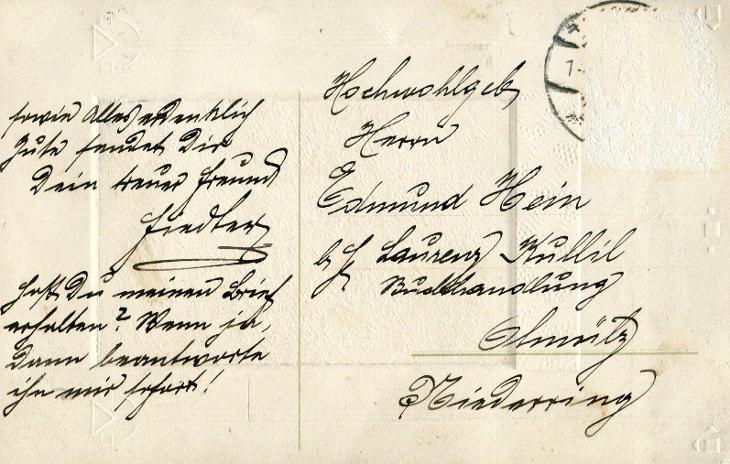 sowie Alles erdenklich
Gute sendet Dir
Dein treuer Freund
Fiedler
Hast Du meinen Brief
erhalten? Wenn ja,
dann beantworte
ihn mir sofort!
Hochwohlgeb
Herrn
Edmund Hein
Laurenz Kullil
Buchhandlung
Olmütz
Niederring